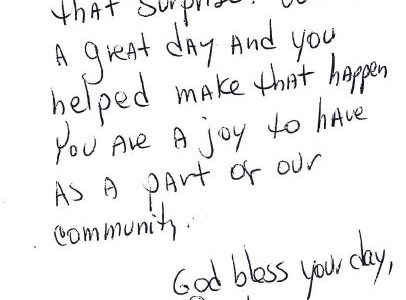 that surprise.
A great day and you
helped make that happen
You are a joy to have
As a part of our
community.
God bless your day,